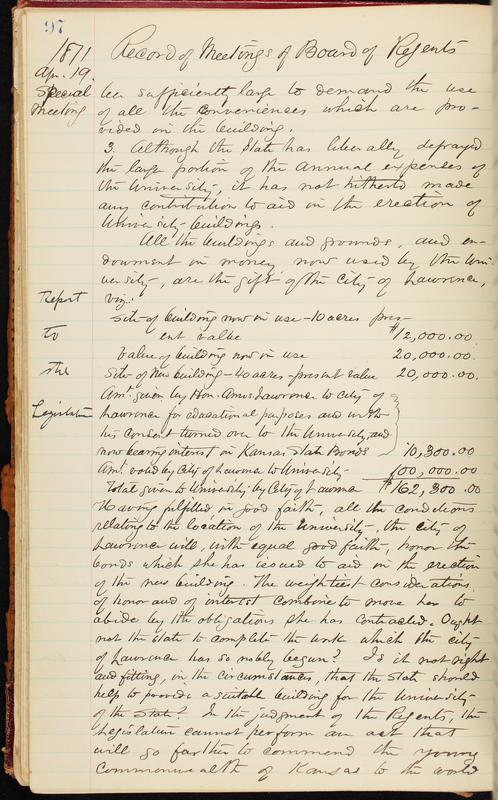 97
1871 Record of Meetings of Board of Regents
Apr. 19.
Special
Meeting
ber sufficiently large to demand the use
of all the conveniences which are pro-
vided in the building.
3. Although the State has liberally defrayed
the large portion of the annual expenses of
the University, it has not hitherto made
any contribution to aid in the erection of
University buildings.
All the buildings and grounds, and en-
dowment in money now used by the Uni-
versity, are the gift of the City of Lawrence,
viz.:
Report
to
the
Legislature
Site of building now in use - 10 acres pres-
ent value $12,000.00
Value of building now in use 20,000.00
Site of New building - 40 acres - present value 20,000.00
Amt. given by Hon. Amos Lawrence to City of
Lawrence for educational purposes and with
his consent turned over to the University, and
now bearing interest in Kansas State Bonds 10,300.00
Amt. voted by City of Lawrence to University 100,000.00
Total given to University by City of Lawrence $162,300.00
Having fulfilled in good faith, all the conditions
relating to the location of the University, the city of
Lawrence will, with equal good faith, honor the
bonds which she has issued to aid in the erection
of the new building. The weightiest considerations
of honor and of interest combine to move her to
abide by the obligations she has contracted. Ought
not the State to complete the work which the city
of Lawrence has so nobly begun? Is it not right
and fitting, in the circumstances, that the State should
help to provide a suitable building for the University
of the State? In the judgment of the Regents, the
Legislature cannot perform an act that
will go farther to commend the young
commonwealth of Kansas to the world